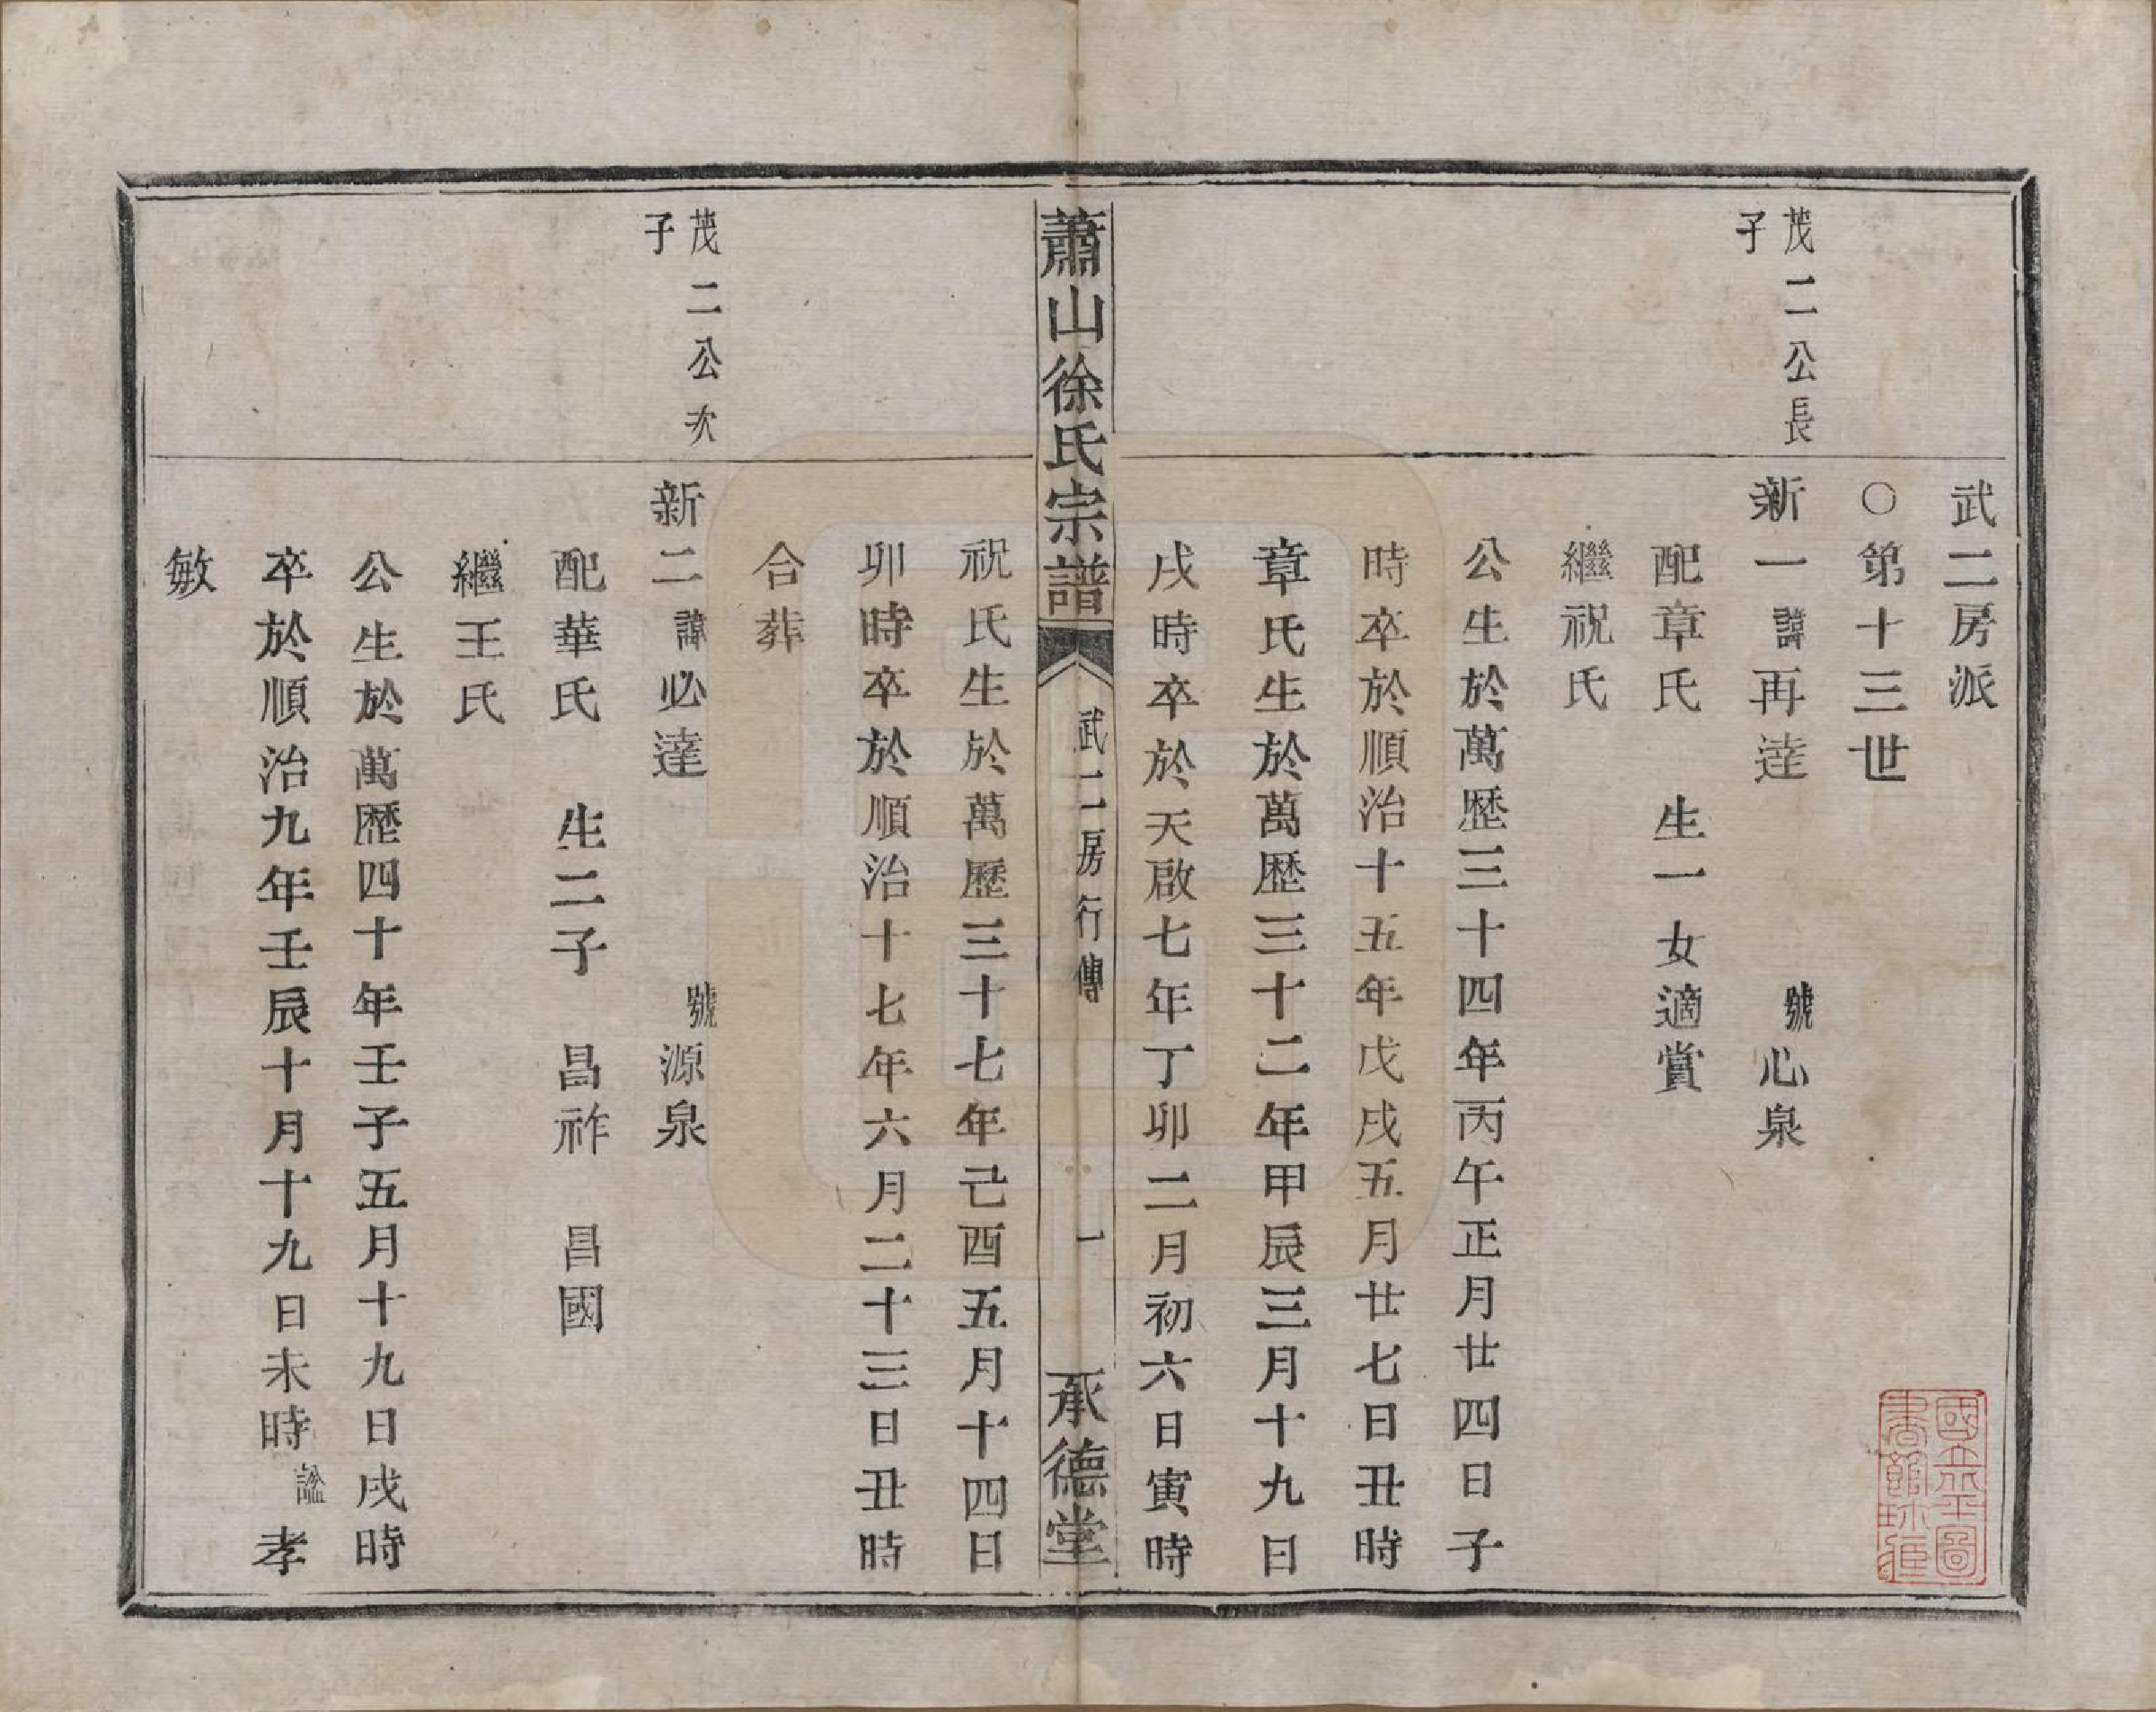 武二房派
○第十三世
茂二公長
子
新一諱再逹 號心泉
配章氏 生一女適賞
繼祝氏
公生於萬歷三十四年丙午正月廿四日子
時卒於順治十五年戊戌五月廿七日丑時
章氏生於萬歷三十二年甲辰三月十九日
戌時卒於天啟七年丁卯二月初六日寅時
蕭山徐氏宗譜 武二房行傳 一 承德堂
祝氏生於萬歷三十七年己酉五月十四日
卯時卒於順治十七年六月二十三日丑時
合葬
茂二公次
子
新二諱必達 號源泉
配華氏 生二子 昌祚 昌國
繼王氏
公生於萬歷四十年壬子五月十九日戌時
卒於順治九年壬辰十月十九日未時 謚孝
敏
國立北平圖
書館珍藏